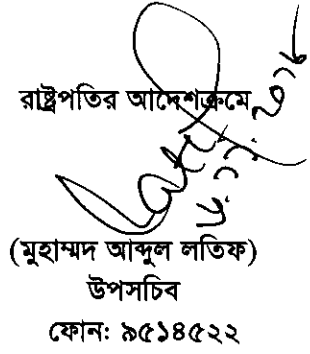 রাষ্ট্রপতির আদেশক্রমে
(মুহাম্মদ আব্দুল লতিফ)
উপসচিব
ফোন: ৯৫১৪৫২২